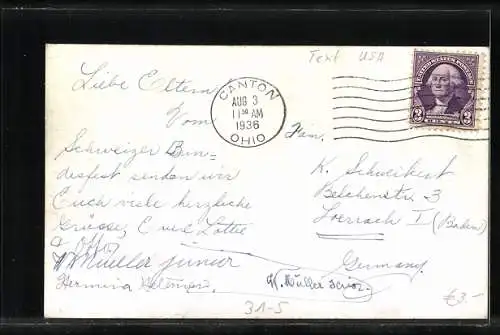 Text USA
Liebe Eltern
CANTON
AUG 3
11 30 AM
1936
OHIO
UNITED STATES POSTAGE
3
Vom
Schweizer Bun=
desfest senden wir
Euch viele herzliche
Grüsse, C und Lotte
W Mueller junior
Hermina
Fam.
K. Schweikert
Belchenstr. 3
Loerrach I (Baden)
Germany
W. Müller senior
31-5
€3.-